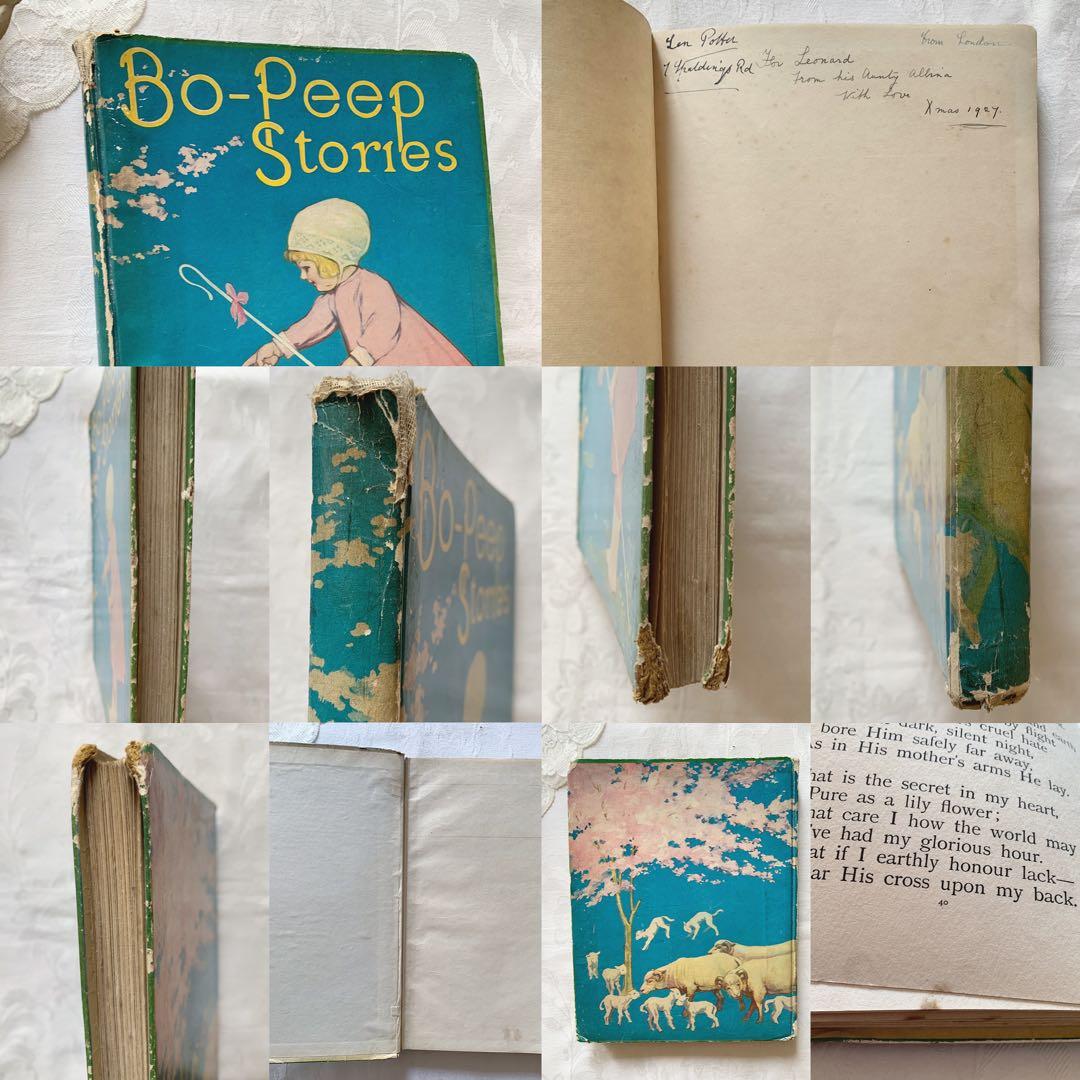 Bo-Peep
Stories
Len Potter
7 Spaldings Rd
from London
For Leonard
From his Aunty Albina
With Love
Xmas 1927.
Bo-Peep
Stories
by flight
cruel hate
dark, silent night,
bore Him safely far away,
As in His mother's arms He lay.
hat is the secret in my heart,
Pure as a lily flower;
hat care I how the world may
've had my glorious hour.
at if I earthly honour lack—
ar His cross upon my back.
40